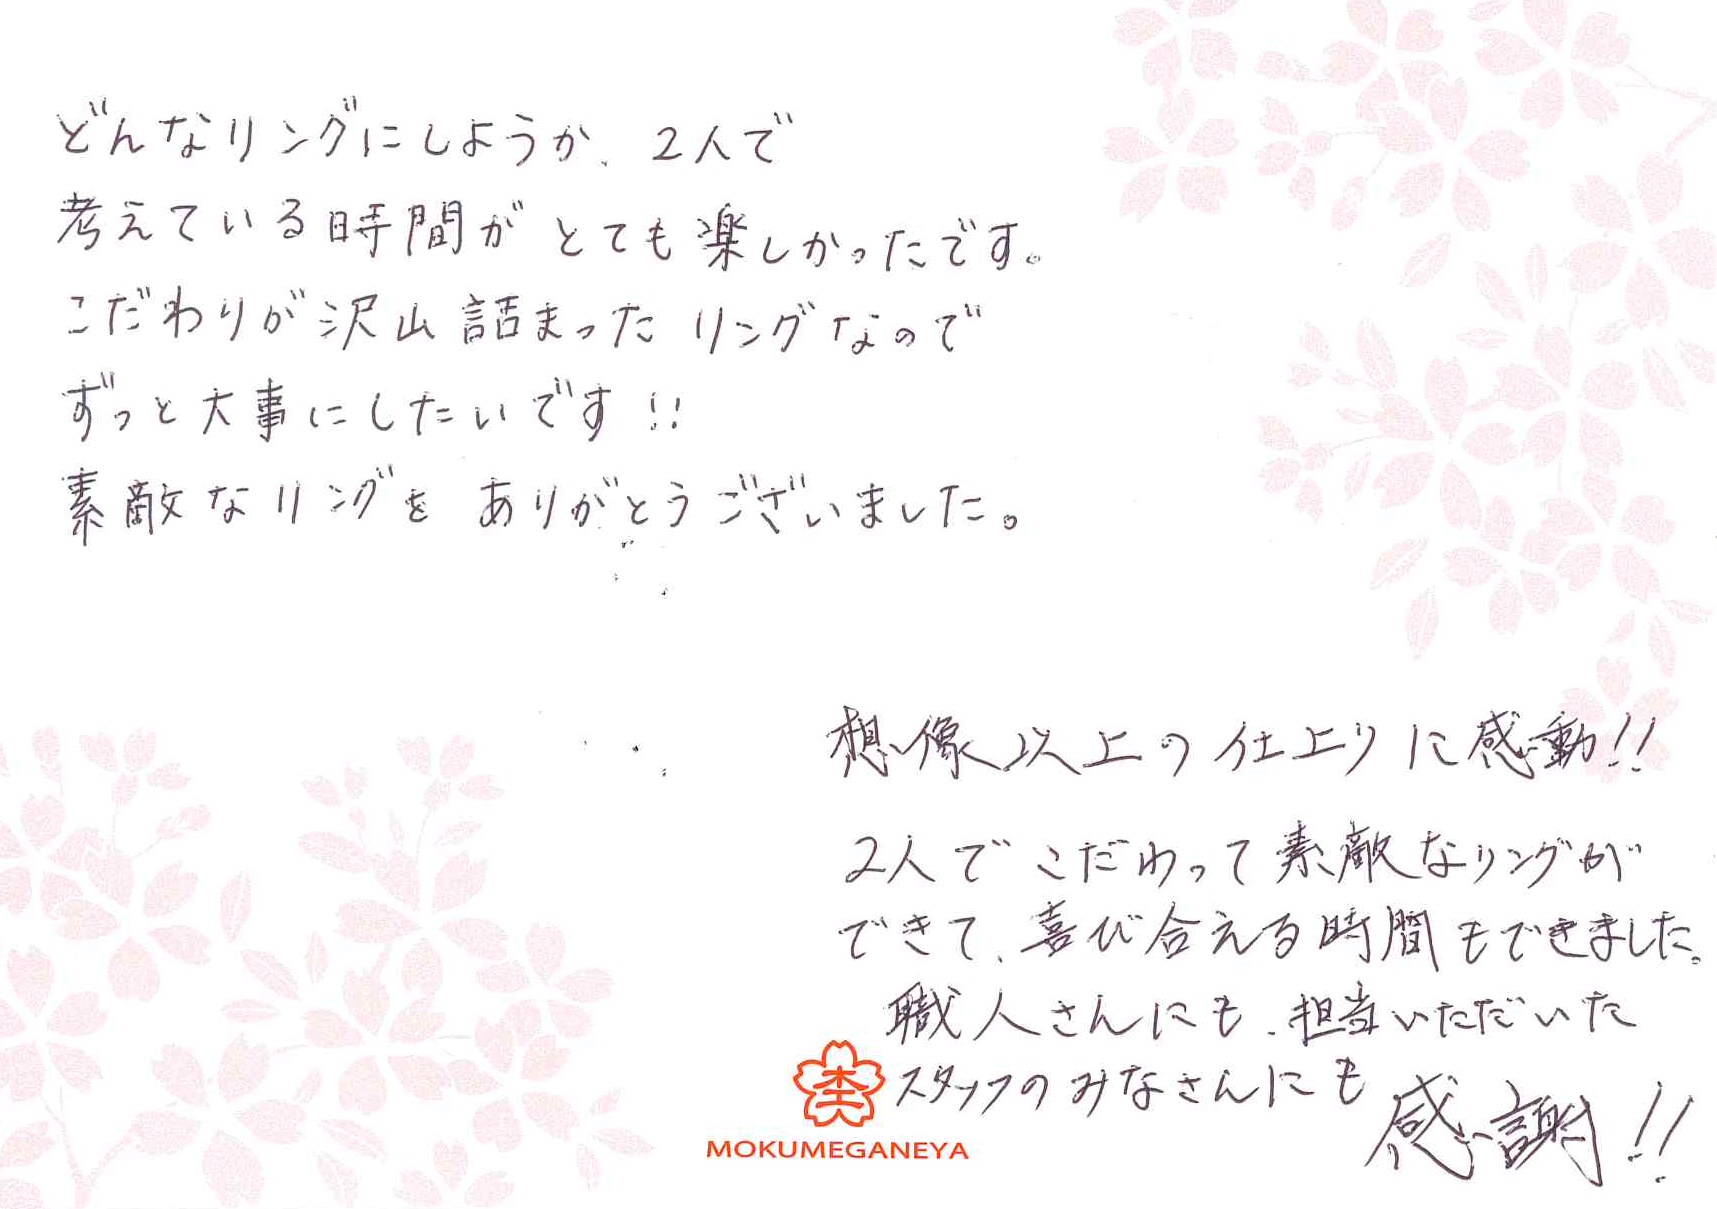 どんなリングにしようか、2人で
考えている時間がとても楽しかったです。
こだわりが沢山詰まったリングなので
ずっと大事にしたいです!!
素敵なリングをありがとうございました。
想像以上の仕上りに感動!!
2人でこだわって素敵なリングが
できて、喜び合える時間もできました。
職人さんにも、担当いただいた
スタッフのみなさんにも
感謝!!
MOKUMEGANEYA